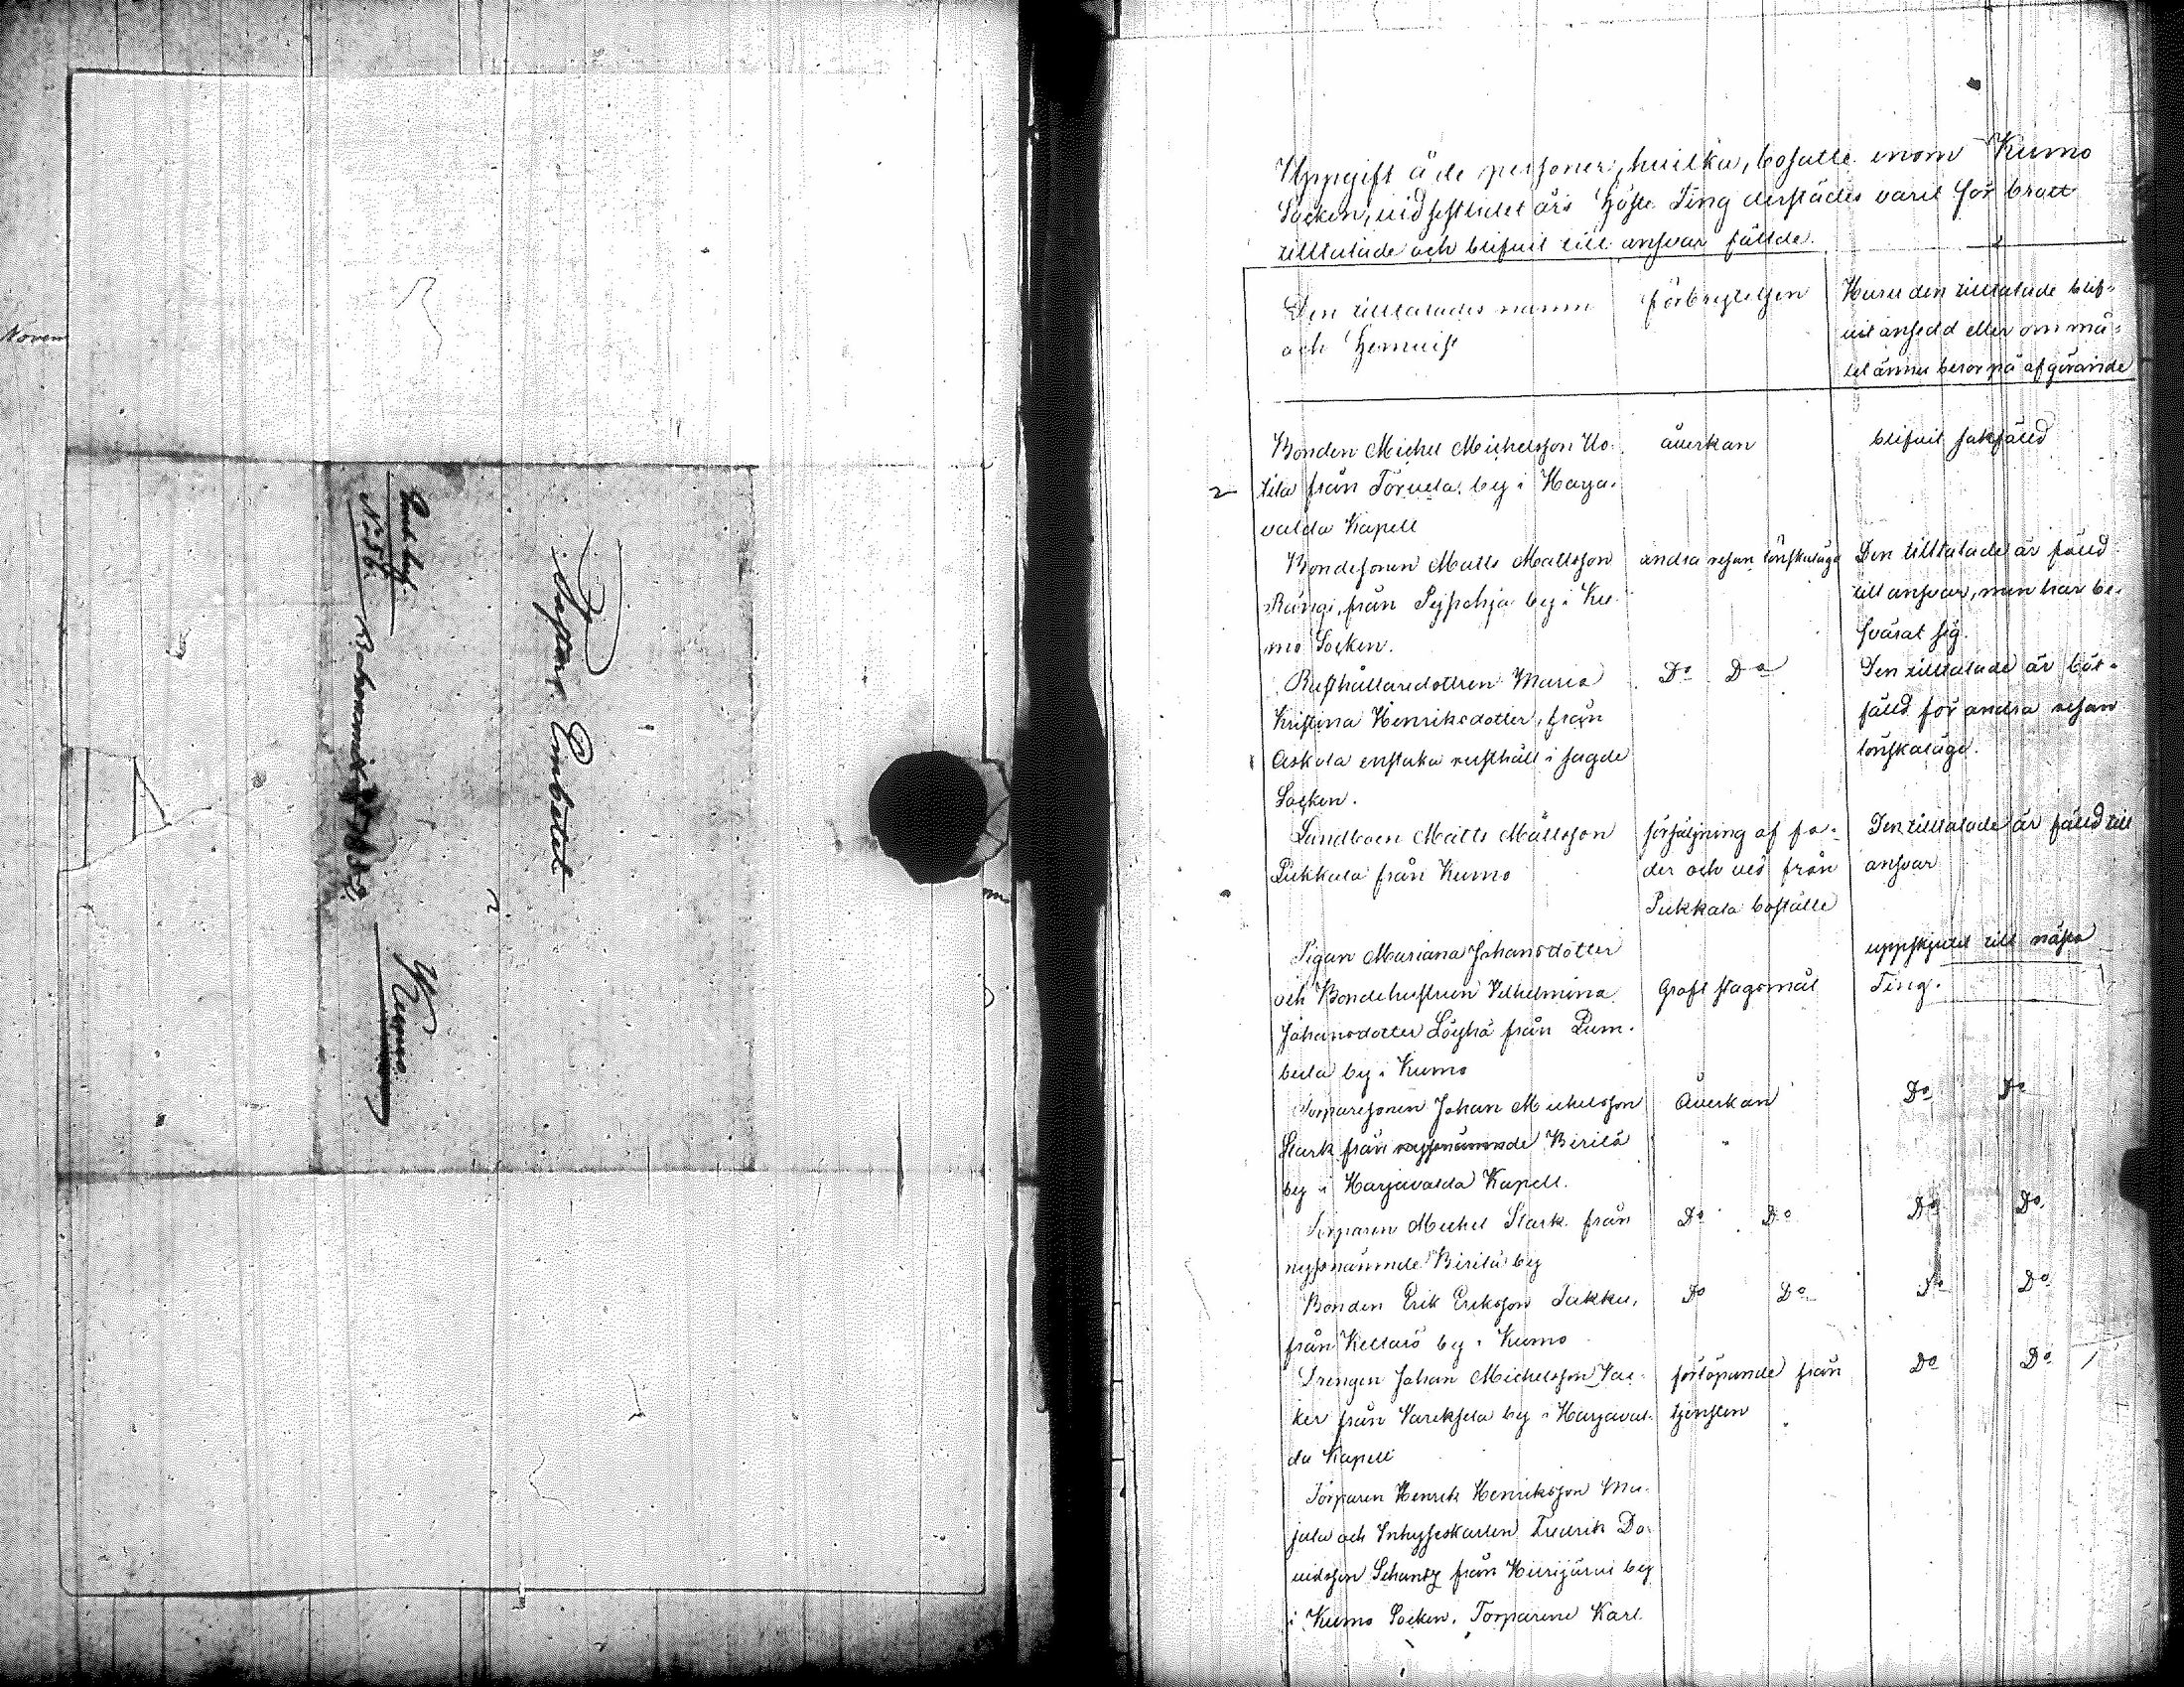 Novem
Pastors Embetet
Kumo
N 56.
Uppgift å de personer, hvilka, bosatte inom Kumo
Socken, vid sistlidet års Höste Ting derstädes varit för brott
tilltalade och blifvit till ansvar fällde.
Den tilltalades namn
och Hemvist
förbrytelsen
Huru den tilltalade blif-
vit ansedd eller om må-
let ännu beror på afgörande
Bonden Michel Michelsson Uo-
tila från Torvela by i Harja-
valda Kapell
åverkan
blifvit sakfälld
2
Bondesonen Matts Mattsson
Rangi, från Pyspohja by i Ku-
mo Socken.
andra resan lönskaläge
Den tilltalade är fälld
till ansvar, men har be-
svärat sig.
Rusthållaredottren Maria
Kristina Henriksdotter, från
Askola enstaka rusthåll i sagde
Socken.
Do Do
Den tilltalade är böt-
fälld för andra resan
lönskaläge.
Landboen Matts Mattsson
Pukkala från Kumo
försäljning af fo-
der och ved från
Pukkala boställe
Den tilltalade är fälld till
ansvar
Pigan Mariana Johansdotter
och Bondehustrun Vilhelmina
Johansdotter Löyhä från
by i Kumo
Groft slagsmål
uppskjutet till nästa
Ting.
Torparesonen Johan Michelsson
Stark från nyssnämnde Birilä
by i Harjavalda Kapell.
Åverkan
Do Do
Torparen Michel Stark från
nyssnämnde Birilä by
Do Do
Do Do
Bonden Erik Eriksson Jukku,
från Keltarö by i Kumo
Do Do
Do Do
Drengen Johan Michelsson
från by i Harjaval-
da Kapell
förlöpande från
tjensten
Do Do
Torparen Henrik Henriksson Mu-
jula och Inhysekarlen Fredrik Da-
vidsson Schantz från Hiirijärvi by
i Kumo Socken, Torparene Karl